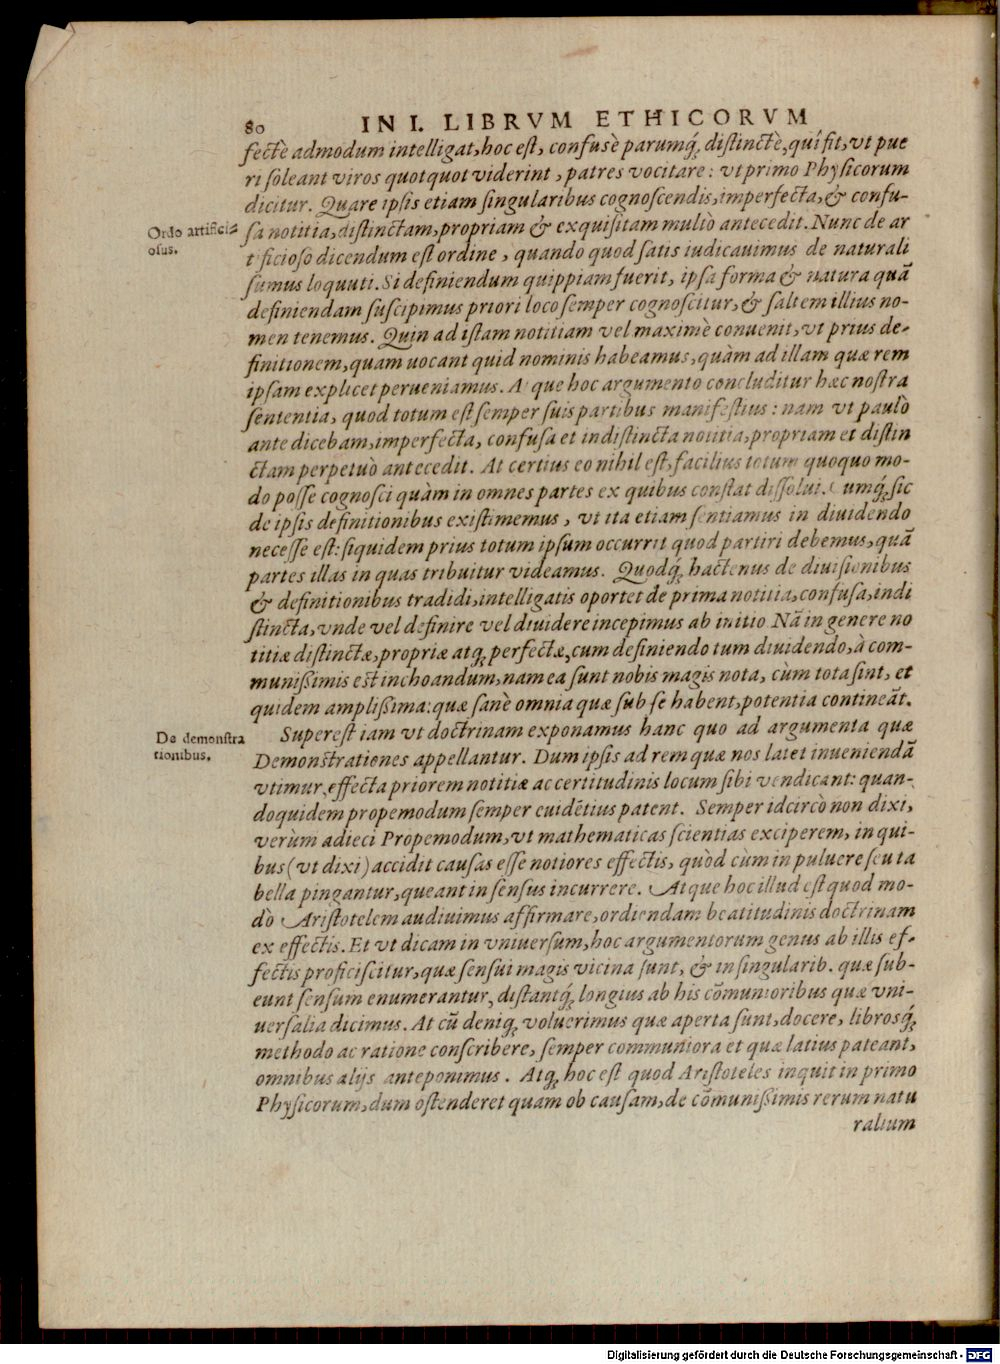 80 IN I. LIBRVM ETHICORVM
fectè admodum intelligat, hoc est, confusè parumq́; distinctè, qui fit, vt pue
ri soleant viros quotquot viderint, patres vocitare: vt primo Physicorum
dicitur. Quare ipsis etiam singularibus cognoscendis, imperfecta, & confu-
Ordo artifici-
osus.
sa notitia, distinctam, propriam & exquisitam multò antecedit. Nunc de ar
t ficioso dicendum est ordine, quando quod satis iudicauimus de naturali
sumus loquuti. Si definiendum quippiam fuerit, ipsa forma & natura quā
definiendam suscipimus priori loco semper cognoscitur, & saltem illius no-
men tenemus. Quin ad istam notitiam vel maximè conuenit, vt prius de-
finitionem, quam uocant quid nominis habeamus, quàm ad illam quæ rem
ipsam explicet perueniamus. A que hoc argumento concluditur hæc nostra
sententia, quod totum est semper suis partibus manifestius: nam vt paulò
ante dicebam, imperfecta, confusa et indistincta notitia, propriam et distin
ctam perpetuò antecedit. At certius eo nihil est, facilius totum quoquo mo-
do posse cognosci quàm in omnes partes ex quibus constat dissolui. Cumq́; sic
de ipsis definitionibus existimemus, vt ita etiam sentiamus in diuidendo
necesse est: siquidem prius totum ipsum occurrit quod partiri debemus, quā
partes illas in quas tribuitur videamus. Quodq́; hactenus de diuisionibus
& definitionibus tradidi, intelligatis oportet de prima notitia, confusa, indi
stincta, vnde vel definire vel diuidere incepimus ab initio Nā in genere no
titiæ distinctæ, propriæ atq; perfectæ, cum definiendo tum diuidendo, à com-
munißimis est inchoandum, nam ea sunt nobis magis nota, cùm tota sint, et
quidem amplißima: quæ sanè omnia quæ sub se habent, potentia contineāt.
De demonstra
tionibus.
Superest iam vt doctrinam exponamus hanc quo ad argumenta quæ
Demonstrationes appellantur. Dum ipsis ad rem quæ nos latet inueniendā
vtimur, effecta priorem notitiæ ac certitudinis locum sibi vendicant: quan-
doquidem propemodum semper euidētius patent. Semper idcircò non dixi,
verùm adieci Propemodum, vt mathematicas scientias exciperem, in qui-
bus (vt dixi) accidit causas esse notiores effectis, quòd cùm in puluere seu ta
bella pingantur, queant in sensus incurrere. Atque hoc illud est quod mo-
dò Aristotelem audiuimus affirmare, ordiendam beatitudinis doctrinam
ex effectis. Et vt dicam in vniuersum, hoc argumentorum genus ab illis ef-
fectis proficiscitur, quæ sensui magis vicina sunt, & in singularib. quæ sub-
eunt sensum enumerantur, distantq́; longius ab his cōmunioribus quæ vni-
uersalia dicimus. At cū deniq; voluerimus quæ aperta sunt, docere, librosq́;
methodo ac ratione conscribere, semper communiora et quæ latius pateant,
omnibus alijs anteponimus. Atq; hoc est quod Aristoteles inquit in primo
Physicorum, dum ostenderet quam ob causam, de cōmunißimis rerum natu
ralium
Digitalisierung gefördert durch die Deutsche Forschungsgemeinschaft - DFG